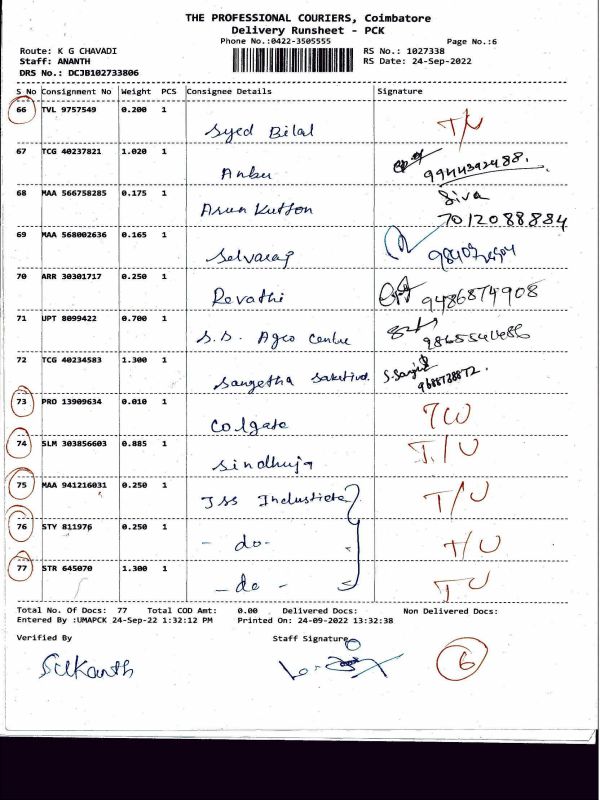 THE PROFESSIONAL COURIERS, Coimbatore
Delivery Runsheet - PCK
Phone No.:0422-3505555 Page No.:6
Route: K G CHAVADI RS No.: 1027338
Staff: ANANTH RS Date: 24-Sep-2022
DRS No.: DCJB102733806
S No Consignment No Weight PCS Consignee Details Signature
66 TVL 9757549 0.200 1
Syed Bilal T/U
67 TCG 40237821 1.020 1
Anbu 9944392488.
68 MAA 566758285 0.175 1 Siva
Arun Kutton 7012088884
69 MAA 568002636 0.165 1
Selvaraj
70 ARR 30301717 0.250 1
Revathi 9486874908
71 UPT 8099422 0.700 1
S.S. Agro Centre
72 TCG 40234583 1.300 1
Sangetha
73 PRO 13909634 0.010 1
Colgate
74 SLM 303856603 0.885 1 T/U
Sindhuja
75 MAA 941216031 0.250 1
JSS T/U
76 STY 811976 0.250 1
- do - T/U
77 STR 645070 1.300 1
- do - TU
Total No. Of Docs: 77 Total COD Amt: 0.00 Delivered Docs: Non Delivered Docs:
Entered By :UMAPCK 24-Sep-22 1:32:12 PM Printed On: 24-09-2022 13:32:38
Verified By Staff Signature
6